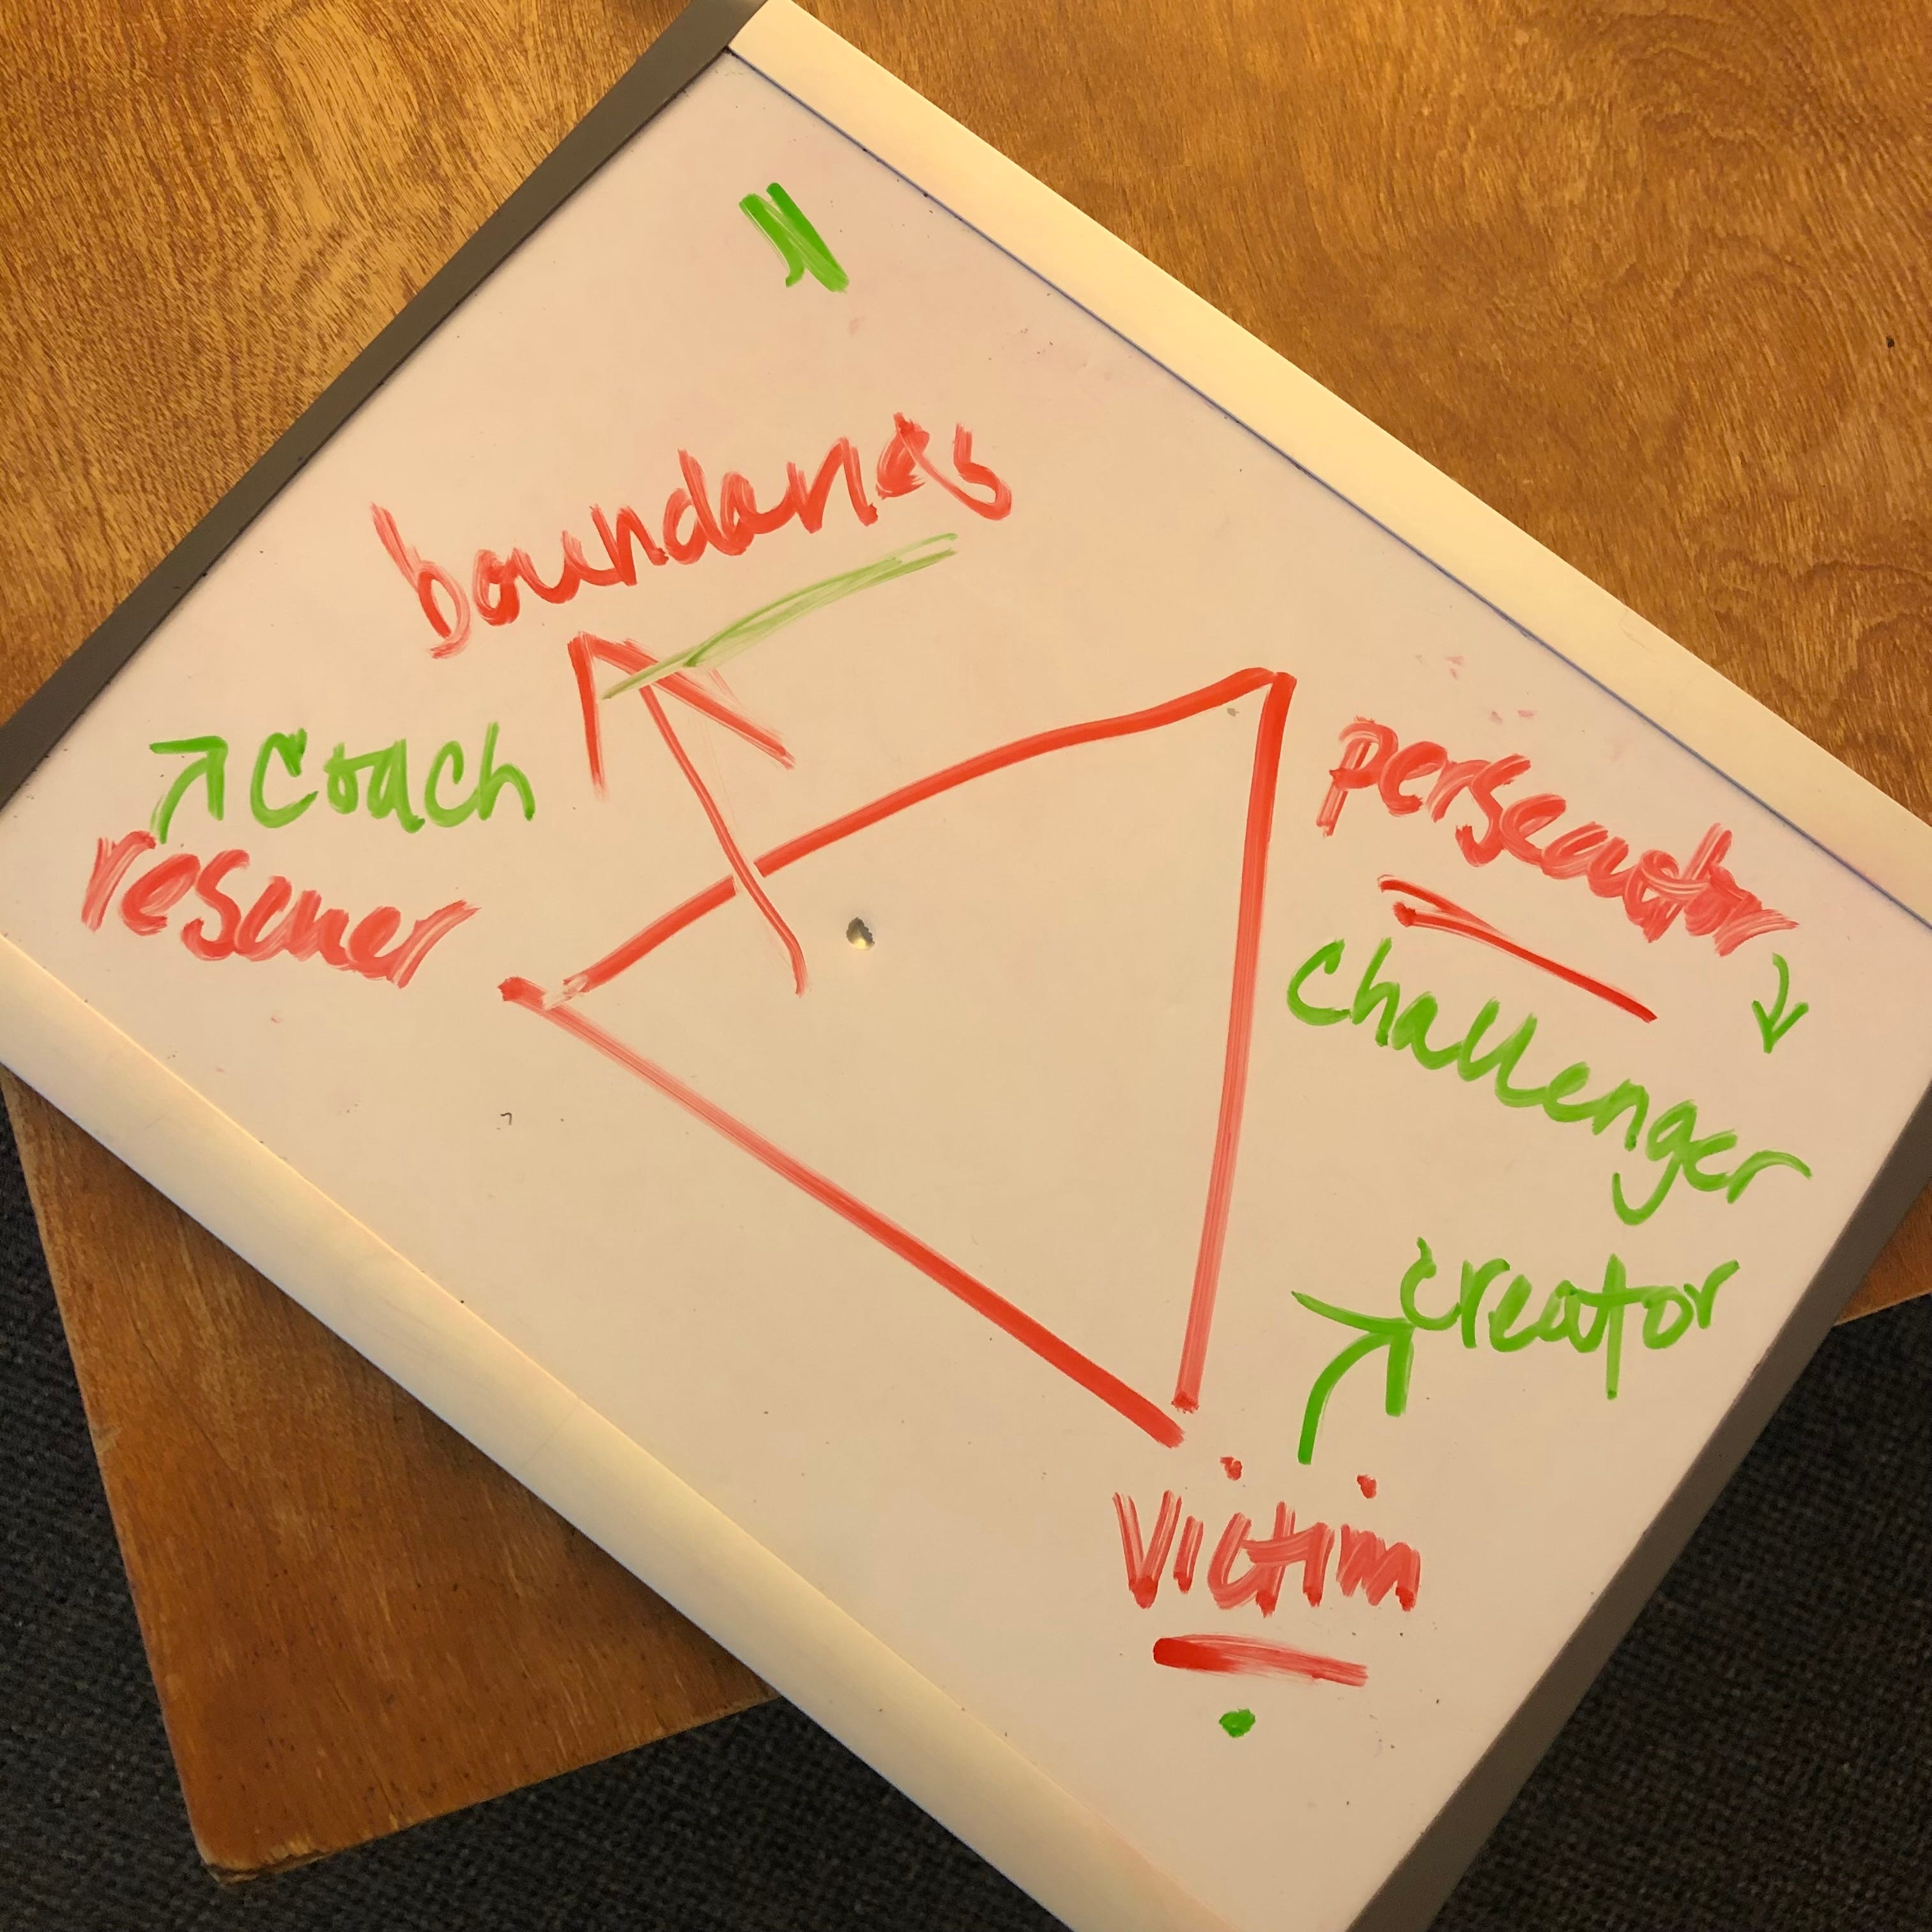 boundaries
coach
rescuer
persecutor
challenger
creator
victim